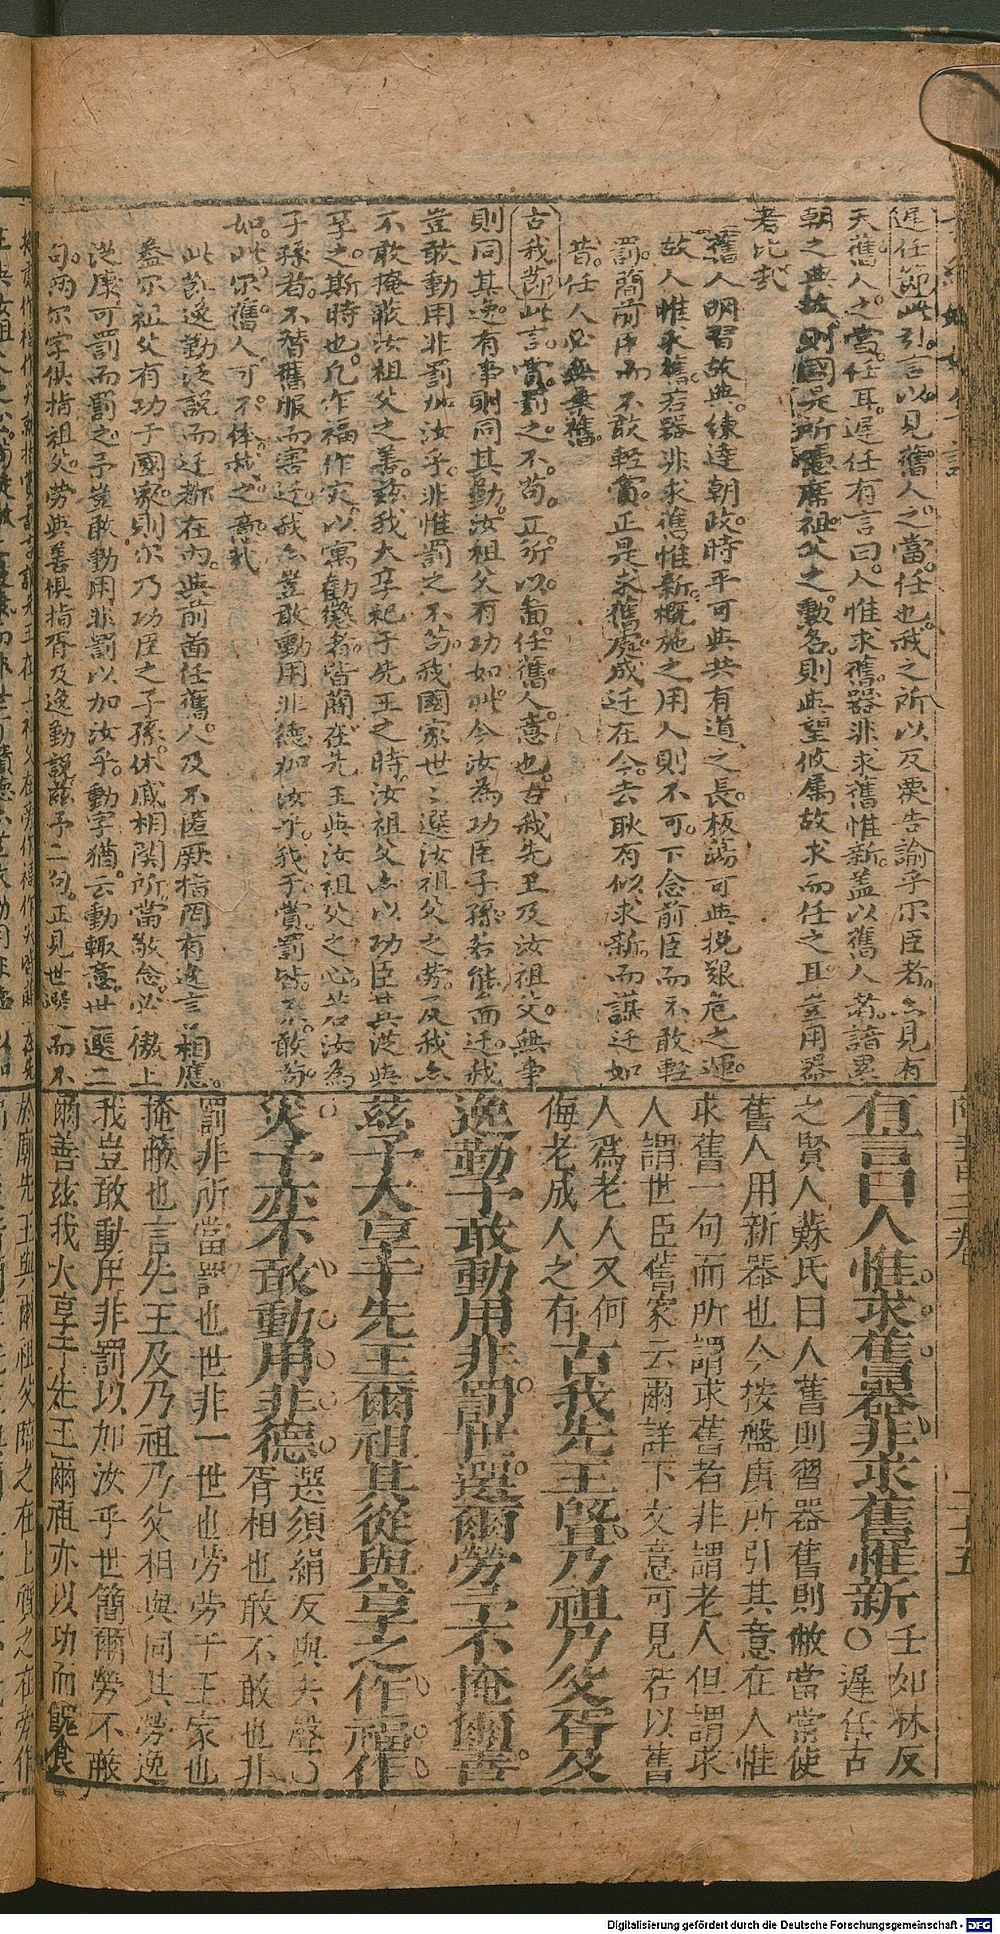 遲任節此引言以見舊人之當任也我之所以反覆告諭乎尔臣者亦見有
天舊人之當任耳遲任有言曰人惟求舊器非求舊惟新蓋以舊人者諳累
朝之典故則國是所憑席祖父之勳名則與望攸属故求而任之耳豈用器
者比哉
舊人明習故典練達朝政時平可與共有道之長板蕩可與挽艱危之運
故人惟求舊若器非求舊惟新概施之用人則不可下念前臣而不敢輕
罰簡前臣而不敢輕賞正是求舊處成迁在今去耿有似求新而謀迁如
昔任人必無棄舊
古我節此言賞罰之不苟正所以啚任舊人意也古我先王及汝祖父無事
則同其逸有事則同其勤汝祖父有功如此今汝為功臣子孫若能而迁我
豈敢動用非罰加汝乎非惟罰之不苟我國家世〻選汝祖父之劳及我亦
不敢掩蔽汝祖父之善茲我大享祀于先王之時汝祖父亦以功臣其從與
享之斯時也凡作福作灾以寓勸懲者皆簡在先王與汝祖父之心若汝為
子孫者不替舊服而害迁我亦豈敢動用非德加汝乎我于賞罰皆不敢苟
如此尔舊人可不体我之意哉
此節逸勤泛説而迁都在內與前啚任舊人及不匿厥指罔有逸言相應
蓋尔祖父有功于國家則尔乃功臣之子孫休戚相関所當敬念必傲上
從康可罰而罰之予豈敢動用非罰以加汝乎動字猶云動輒意世選二
句兩尔字俱指祖父勞與善俱指胥及逸勤說茲予二句正見世選而不
有言曰人惟求舊器非求舊惟新 任如林反○遲任古
之賢人蘇氏曰人舊則習器舊則敝當常使
舊人用新器也今按盤庚所引其意在人惟
求舊一句而所謂求舊者非謂老人但謂求
人謂世臣舊家云爾詳下文意可見若以舊
人爲老人又何侮老成人之有 古我先王曁乃祖乃父胥及
逸勤予敢動用非罰世選爾勞予不掩爾善
茲予大享于先王爾祖其從與享之作福作
災予亦不敢動用非德 選須絹反與共聲○胥相也敢不敢也非
罰非所當罰也世非一世也勞勞于王家也
掩蔽也言先王及乃祖乃父相與同其勞逸
我豈敢動用非罰以加汝乎世簡爾勞不蔽
爾善茲我大享于先王爾祖亦以功而配食
Digitalisierung gefördert durch die Deutsche Forschungsgemeinschaft - DFG